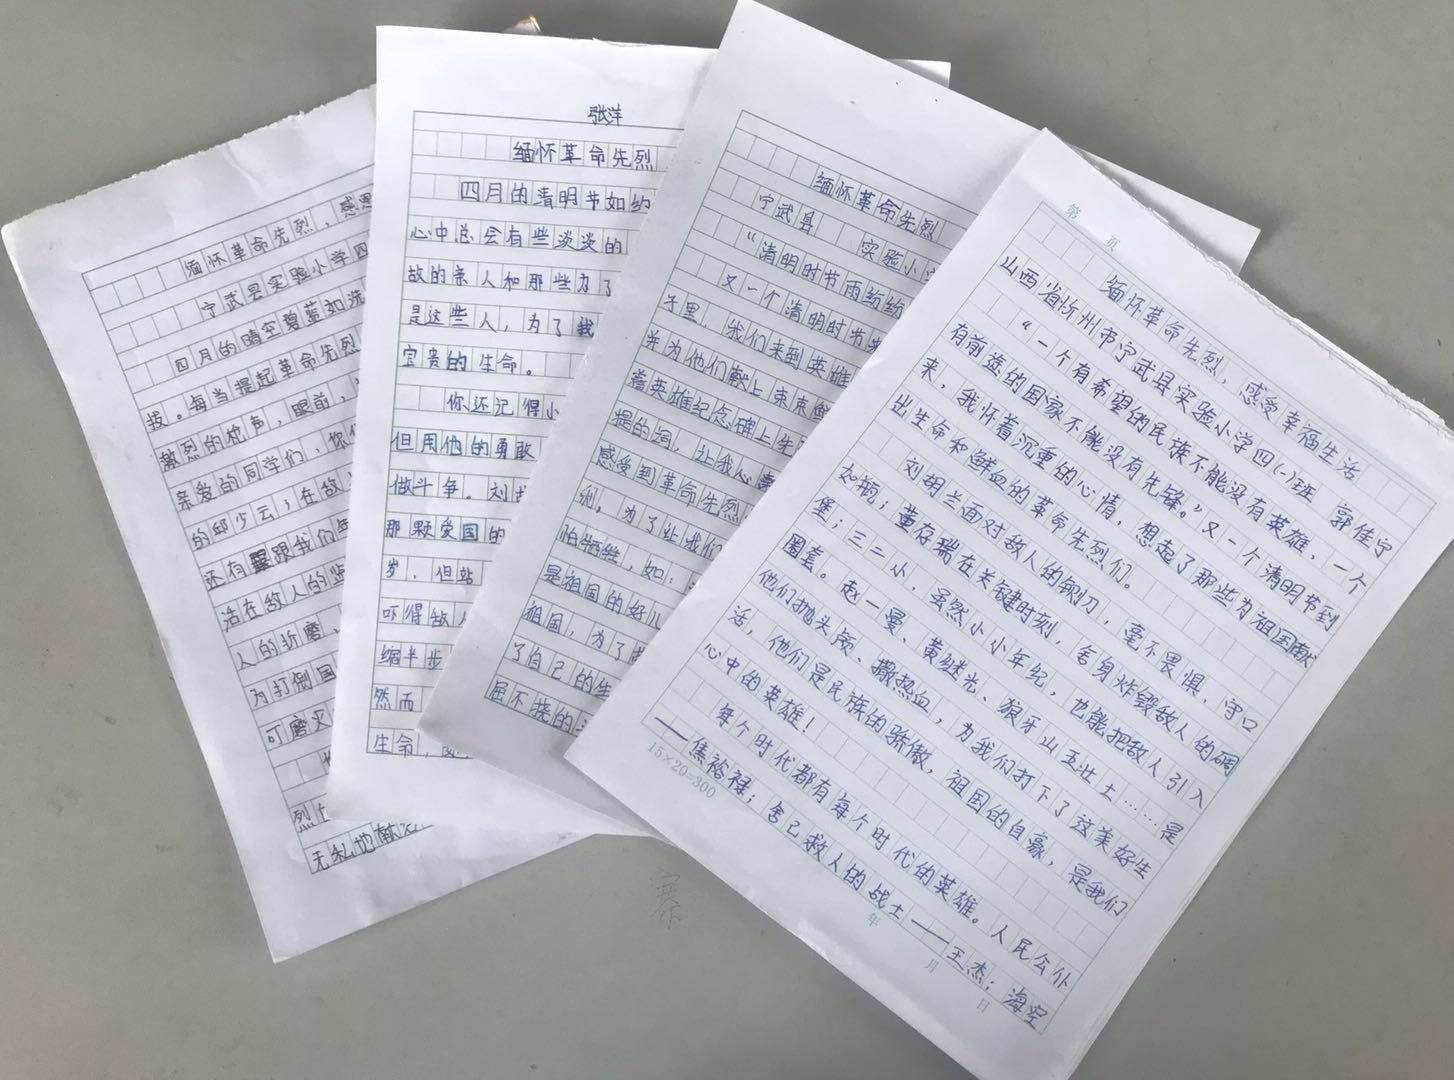 缅怀革命先烈，感恩
宁武县实验小学四
四月的晴空碧蓝如洗
拔。每当提起革命先烈
激烈的枪声，眼前，
亲爱的同学们，你
的邱少云；在敌
还有跟我们年
活在敌人的监
人的折磨，
为打倒国
可磨灭
烈
无私地献
张洋
缅怀革命先烈
四月的清明节如约
心中总会有些淡淡的
故的亲人和那些为了
是这些人，为了我
宜贵的生命。
你还记得小
但用他的勇敢
做斗争。刘
那颗爱国的
岁，但站
吓得敌
缩半步
然而
生命，
缅怀革命先烈
宁武县 实验小
“清明时节雨纷纷
又一个清明时节
千里，我们来到英雄
并为他们献上束束鲜
着英雄纪念碑上先
提的词，让我心
感受到革命先烈
利，为了让我们
怕牺牲，如：
是祖国的好儿
祖国，为了
了自己的生
屈不挠的
第 页
缅怀革命先烈，感受幸福生活
山西省忻州市宁武县实验小学四(一)班 郭佳宁
“一个有希望的民族不能没有英雄，一个
有前途的国家不能没有先锋。”又一个清明节到
来，我怀着沉重的心情，想起了那些为祖国献
出生命和鲜血的革命先烈们。
刘胡兰面对敌人的铡刀，毫不畏惧、守口
如瓶；董存瑞在关键时刻，舍身炸毁敌人的碉
堡；王二小，虽然小小年纪，也能把敌人引入
圈套。赵一曼、黄继光、狼牙山五壮士……是
他们抛头颅、撒热血，为我们打下了这美好生
活，他们是民族的骄傲，祖国的自豪，是我们
心中的英雄！
每个时代都有每个时代的英雄。人民公仆
——焦裕禄；舍己救人的战士——王杰；海空
15×20=300
年 月 日